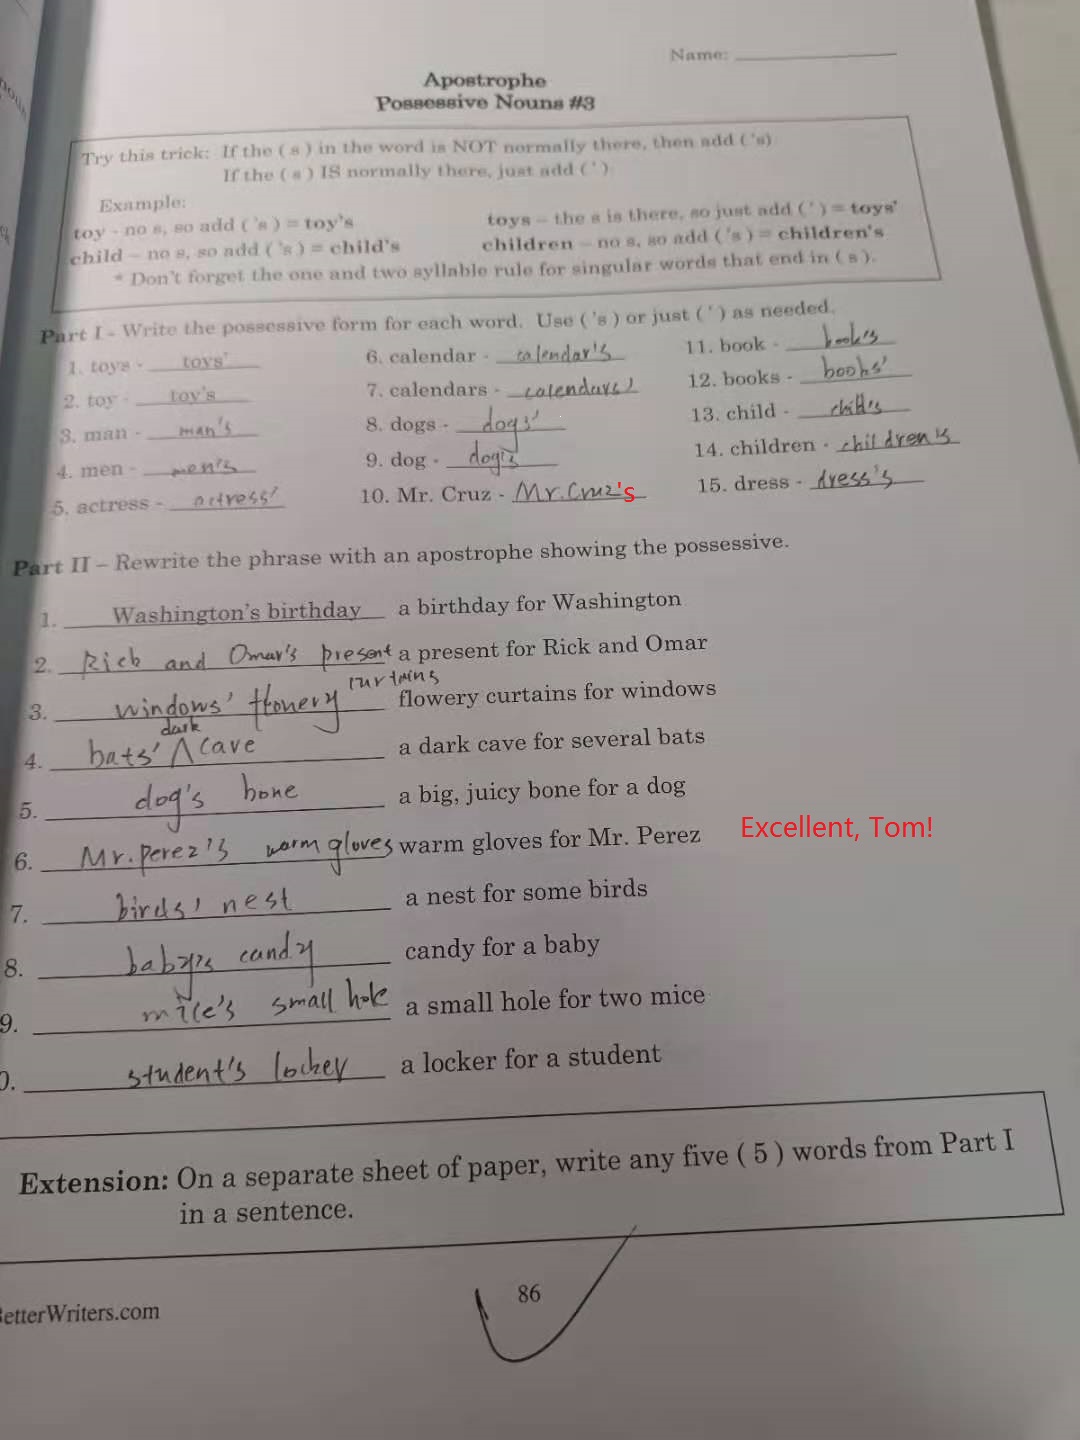 Name:
Apostrophe
Possessive Nouns #3
Try this trick: If the ( s ) in the word is NOT normally there, then add ( 's)
If the ( s ) IS normally there, just add ( ' ).
Example:
toy - no s, so add ( 's ) = toy's
toys – the s is there, so just add ( ' ) = toys'
child – no s, so add ( 's ) = child's
children – no s, so add ( 's ) = children's
* Don't forget the one and two syllable rule for singular words that end in ( s ).
Part I - Write the possessive form for each word. Use ( 's ) or just ( ' ) as needed.
1. toys - toys'
2. toy - toy's
3. man - man's
4. men - men's
5. actress - actress'
6. calendar - calendar's
7. calendars - calendars'
8. dogs - dogs'
9. dog - dog's
10. Mr. Cruz - Mr. Cruz's
11. book - book's
12. books - books'
13. child - child's
14. children - children's
15. dress - dress's
Part II – Rewrite the phrase with an apostrophe showing the possessive.
1. Washington's birthday a birthday for Washington
2. Rick and Omar's present a present for Rick and Omar
curtains
3. windows' flowery flowery curtains for windows
dark
4. bats' ∧ cave a dark cave for several bats
5. dog's bone a big, juicy bone for a dog
6. Mr. perez's warm gloves warm gloves for Mr. Perez
Excellent, Tom!
7. birds' nest a nest for some birds
8. baby's candy candy for a baby
9. mice's small hole a small hole for two mice
0. student's locker a locker for a student
Extension: On a separate sheet of paper, write any five ( 5 ) words from Part I
in a sentence.
86
BetterWriters.com